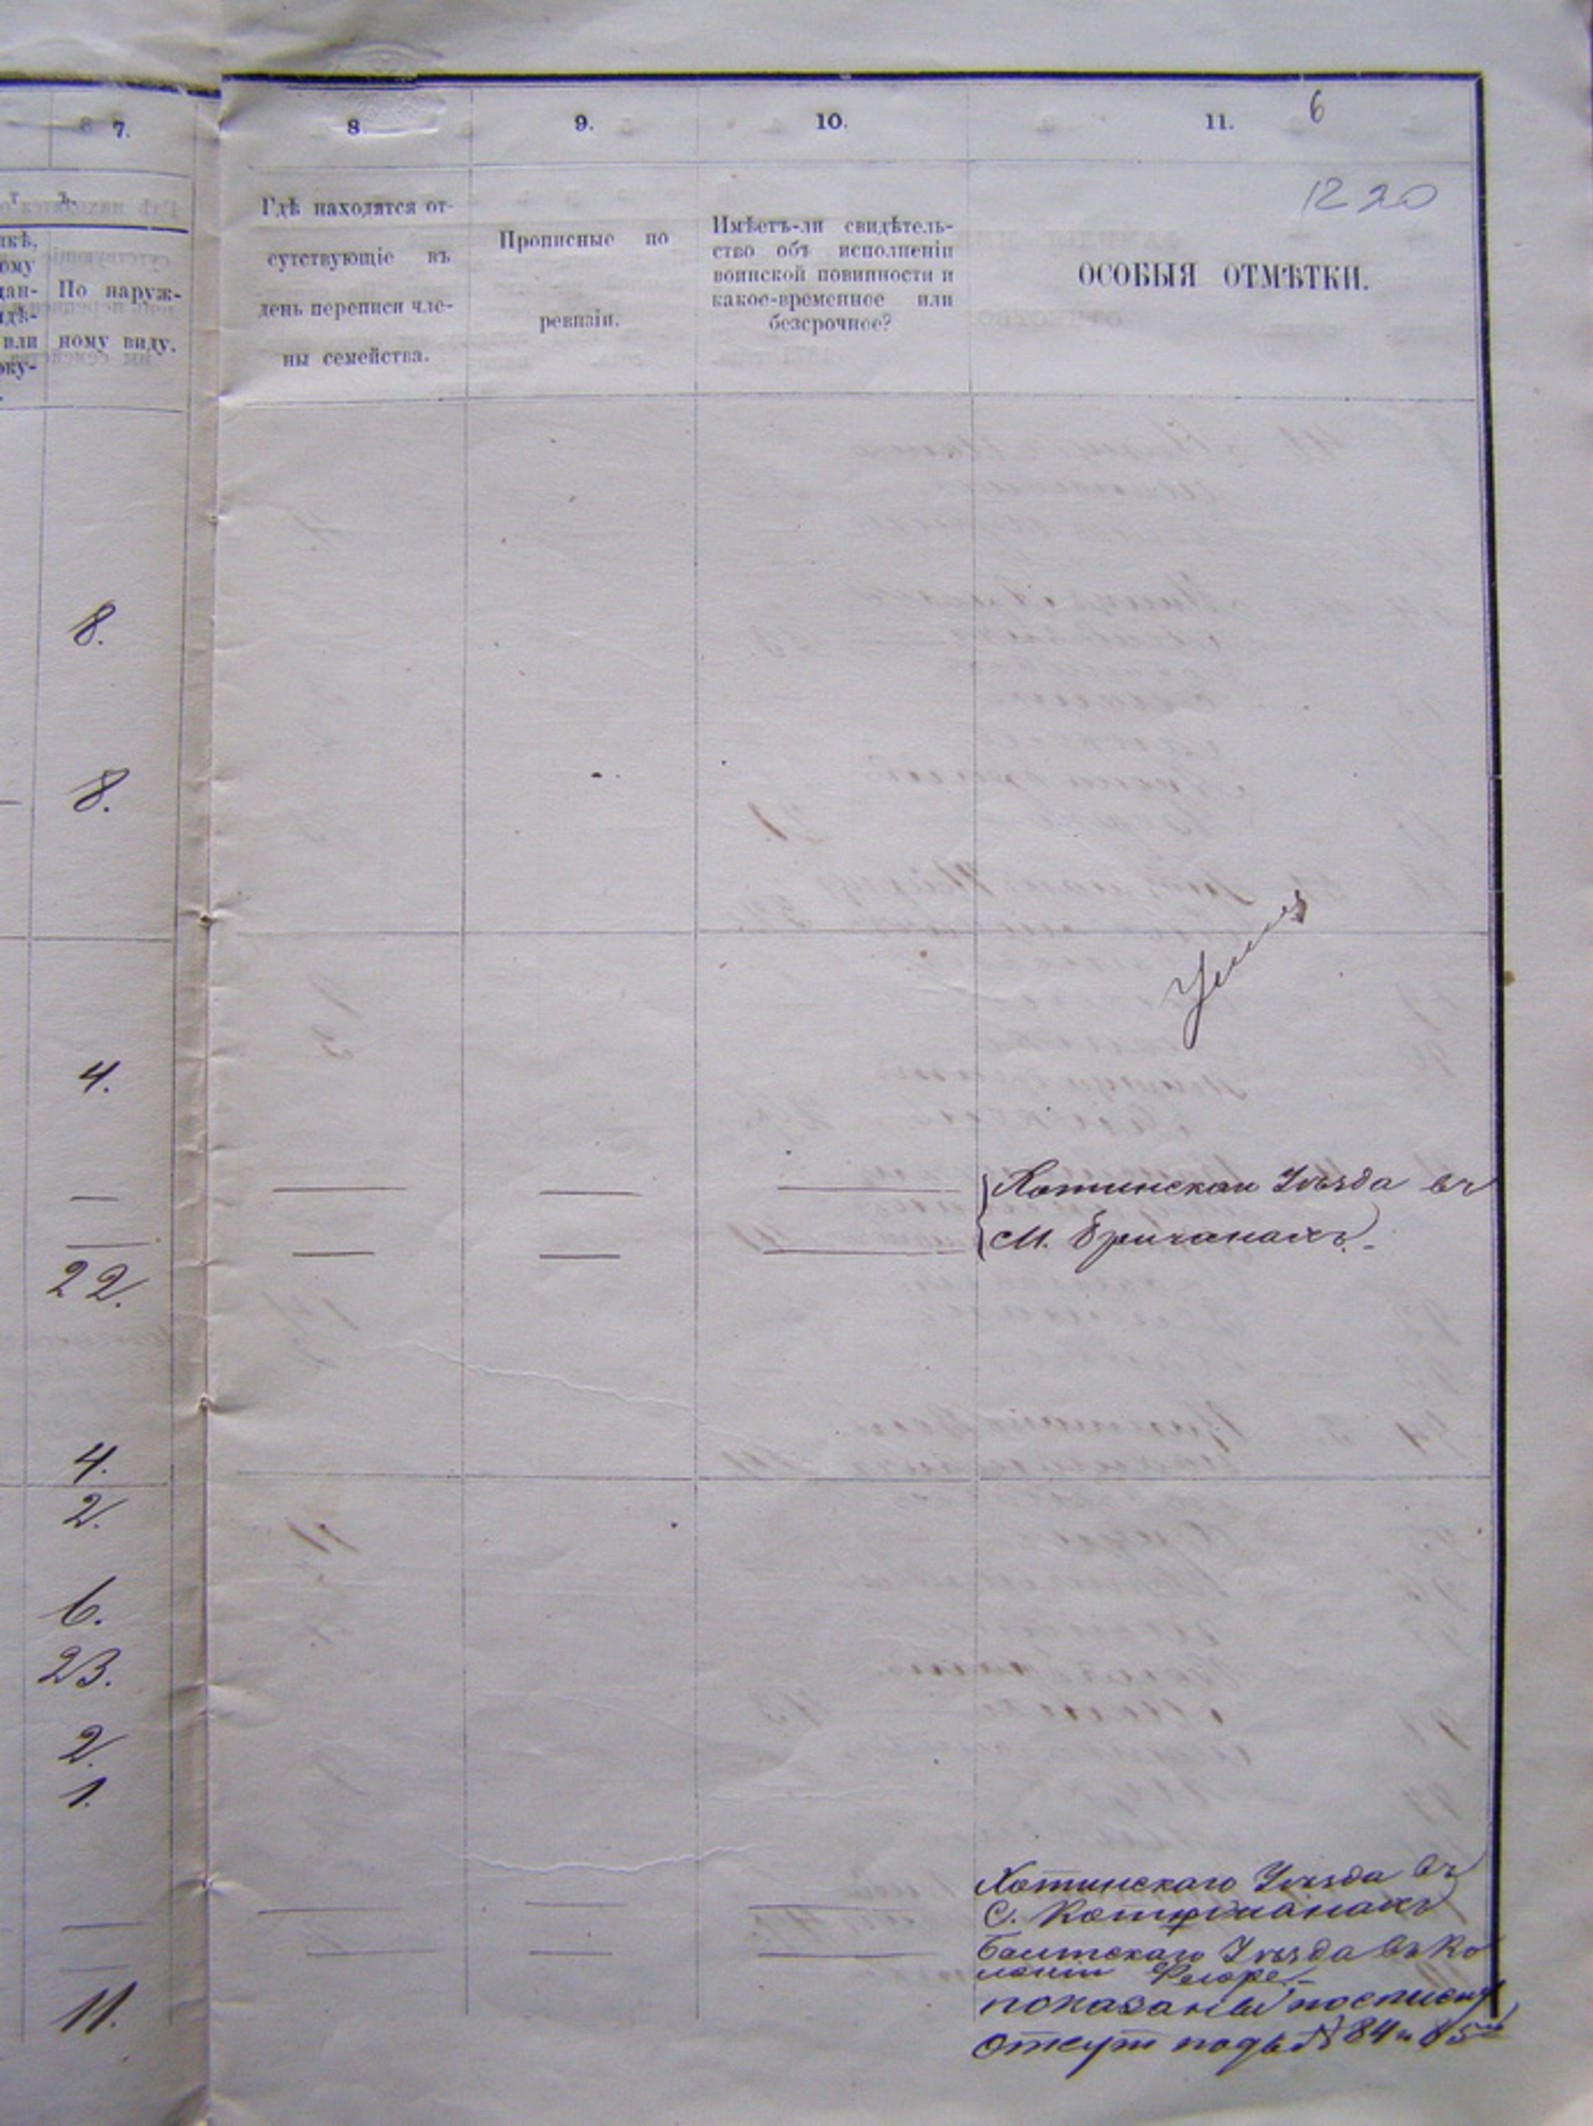 6
7.
8.
9.
10.
11.
1220
По наруж-
ному виду.
Гдѣ находятся от-
сутствующіе въ
день переписи чле-
ны семейства.
Прописные по
ревизіи.
Имѣетъ-ли свидѣтель-
ство объ исполненіи
воинской повинности и
какое-временное или
безсрочное?
ОСОБЫЯ ОТМѢТКИ.
8.
8.
Умеръ
4.
Хотинскаго Уѣзда въ
М. Бричанахъ.
22.
4.
2.
6.
23.
2.
1.
Хотинскаго Уѣзда въ
С.
Балтскаго Уѣзда въ Ко
лоніи
11.
показаны по списку
отсут подъ № 84 и 85